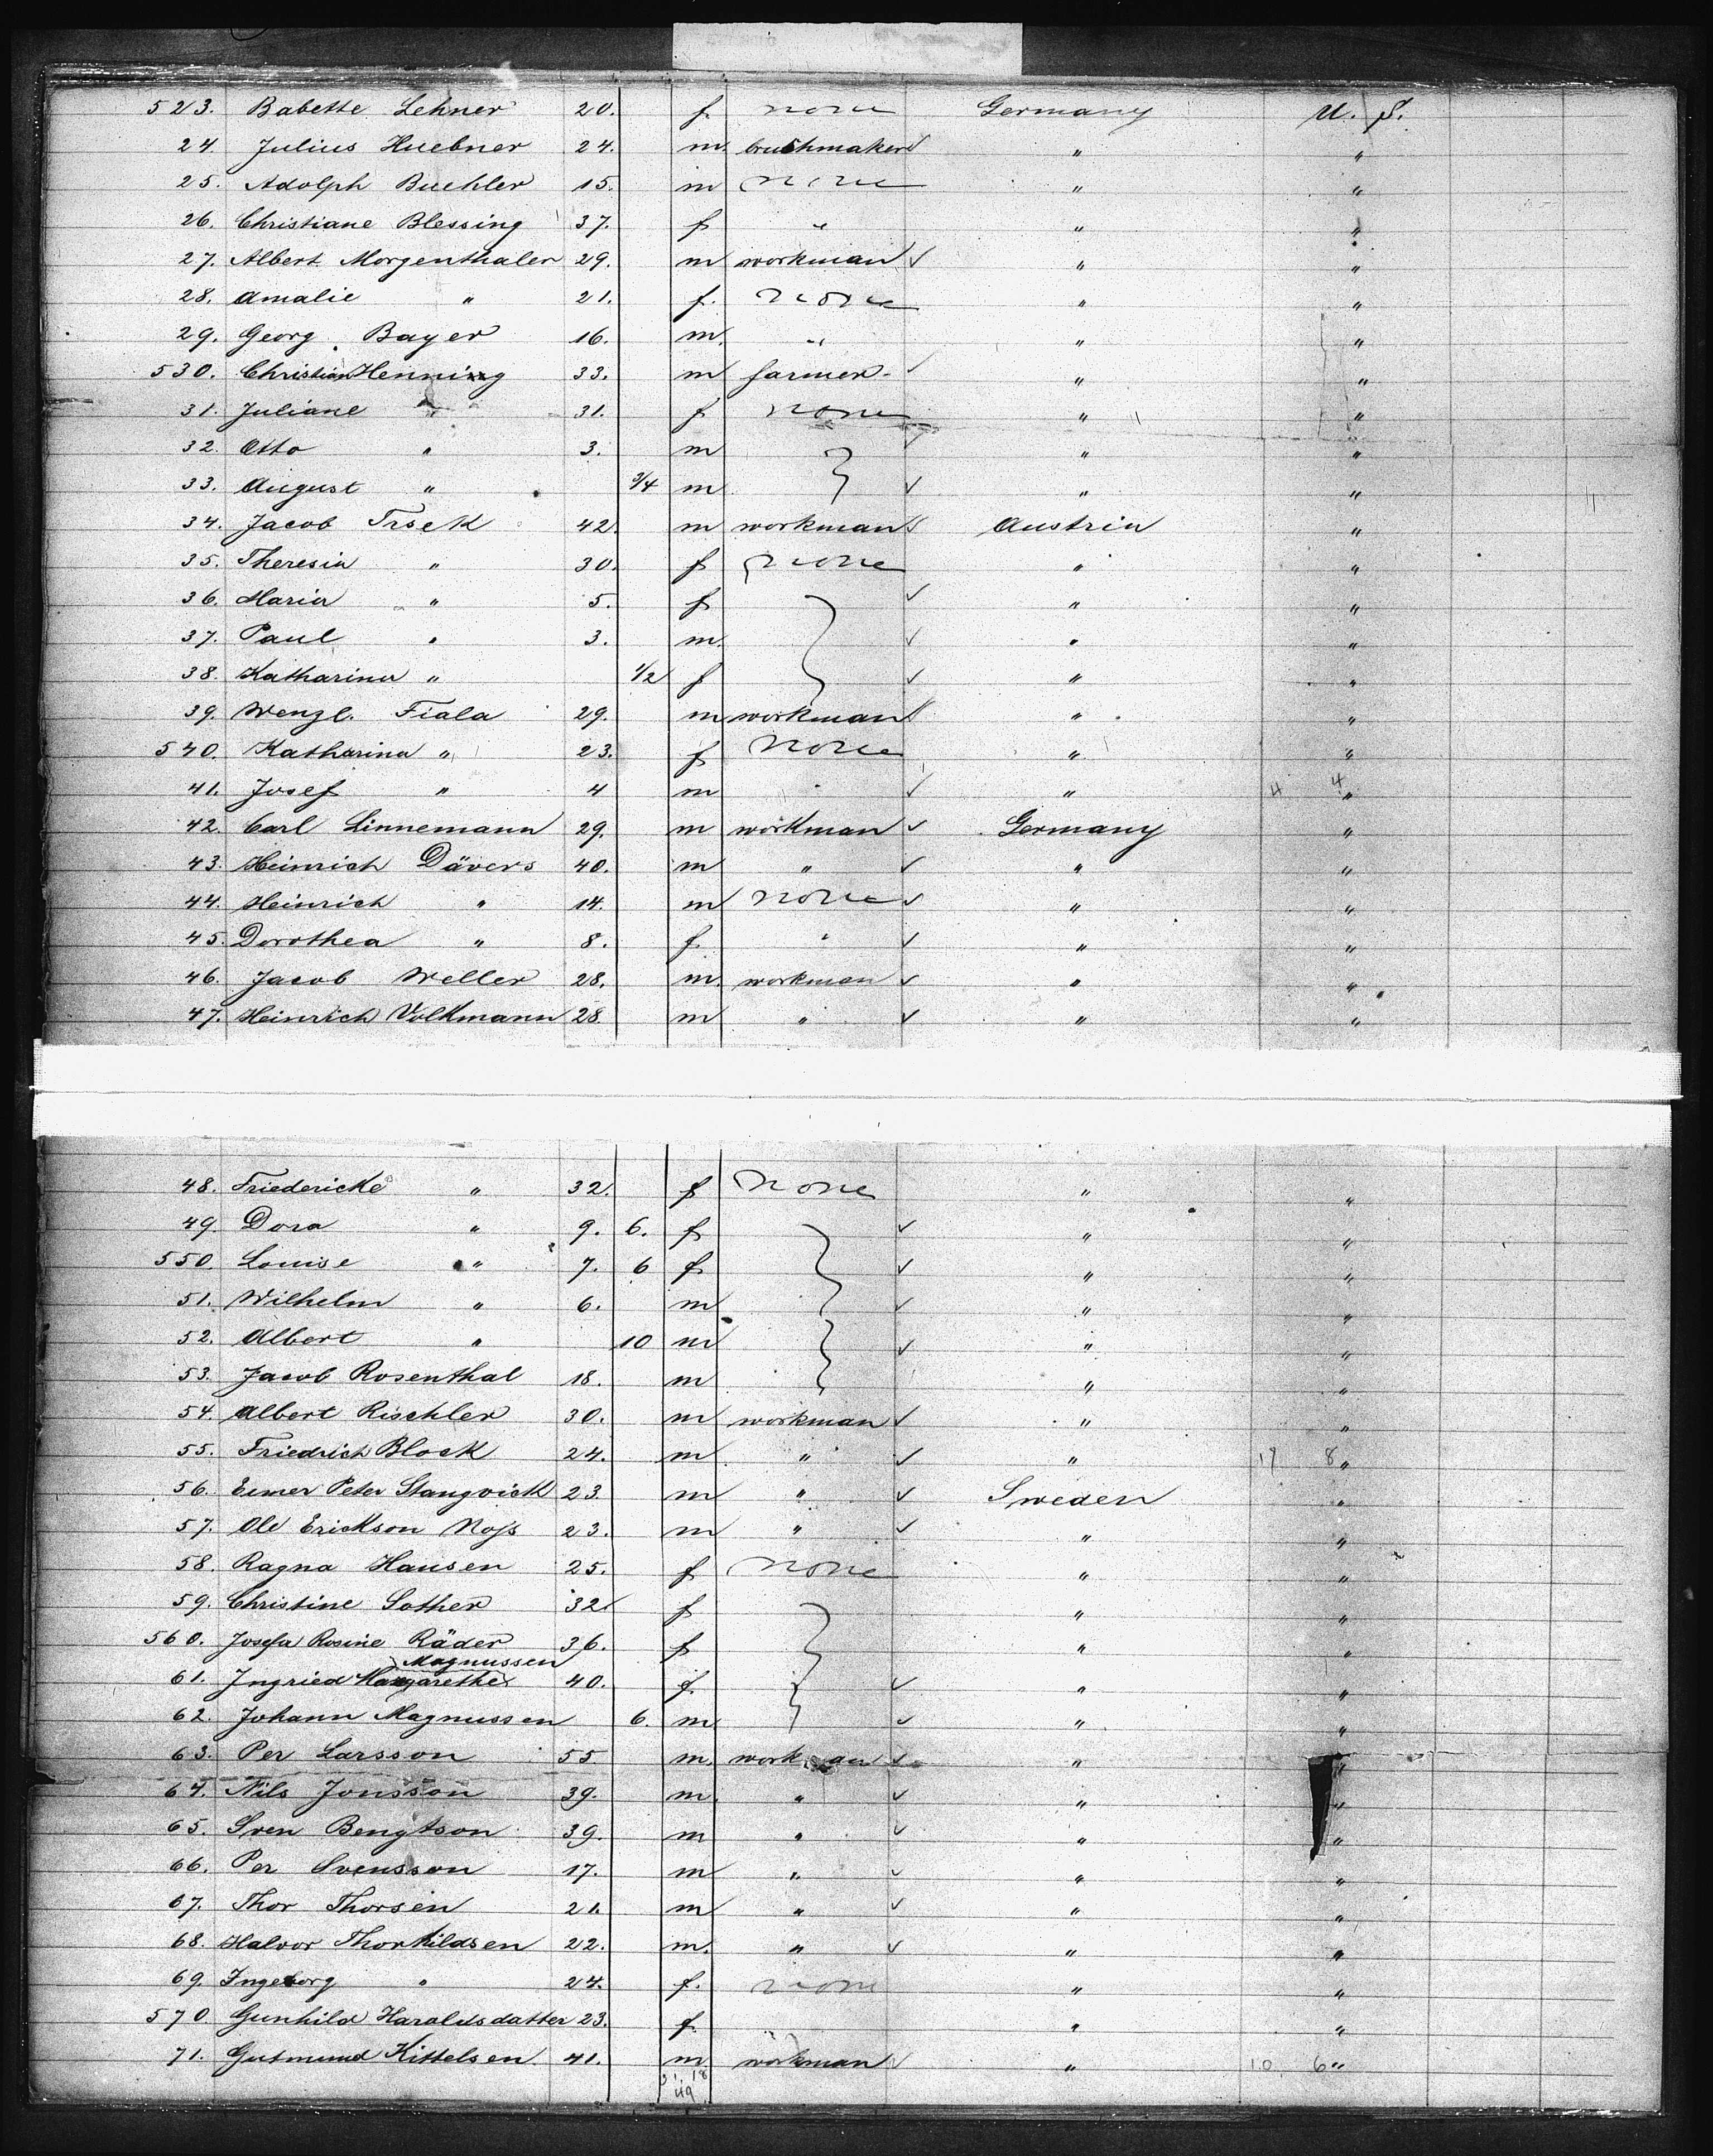 523. Babette Lehner 20. f none Germany U. S.
24. Julius Huebner 24. m. brushmaker " "
25. Adolph Buehler 15. m none " "
26. Christiane Blessing 37. f " " "
27. Albert Morgenthaler 29. m workman " "
28. Amalie " 21. f. none " "
29. Georg Bayer 16. m. " " "
530. Christian Henning 33. m farmer " "
31. Juliane " 31. f none " "
32. Otto " 3. m " "
33. August " 3/4 m " "
34. Jacob Trsek 42 m workman Austria "
35. Theresia " 30. f none " "
36. Maria " 5. f " "
37. Paul " 3. m. " "
38. Katharina " 1/2 f " "
39. Wenzl. Fiala 29. m workman " "
540. Katharina " 23. f none " "
41. Josef " 4 m " " 4 4 "
42. Carl Linnemann 29. m workman Germany "
43. Heinrich Dävers 40. m " " "
44. Heinrich " 14. m none " "
45. Dorothea " 8. f. " " "
46. Jacob Weller 28. m. workman " "
47. Heinrich Volkmann 28. m " " "
48. Friedericke " 32. f none " "
49. Dora " 9. 6. f " "
550. Louise " 7. 6 f " "
51. Wilhelm " 6. m " "
52. Albert " 10 m " "
53. Jacob Rosenthal 18. m " "
54. Albert Rischler 30. m workman " "
55. Friedrich Block 24. m " " 17 8 "
56. Einer Peter Stangvick 23. m " Sweden "
57. Ole Erickson Nojs 23. m " " "
58. Ragna Hansen 25. f none " "
59. Christine Sother 32. f " "
560. Josefa Rosine Räder 36. f " "
Magnussen
61. Ingried Margarethe 40. f. " "
62. Johann Magnussen 6. m " "
63. Per Larsson 55 m. workman " "
64. Nils Jonsson 39. m. " " "
65. Sven Bengtson 39. m " " "
66. Per Svensson 17. m " " "
67. Thor Thorsen 21. m " " "
68. Halvor Thorkildsen 22. m. " " "
69. Ingeborg " 24. f. none " "
570. Gunhild Haraldsdatter 23. f. " " "
71. Gutmund Kittelsen. 41. m. workman " 10 6 "
31. 18
49